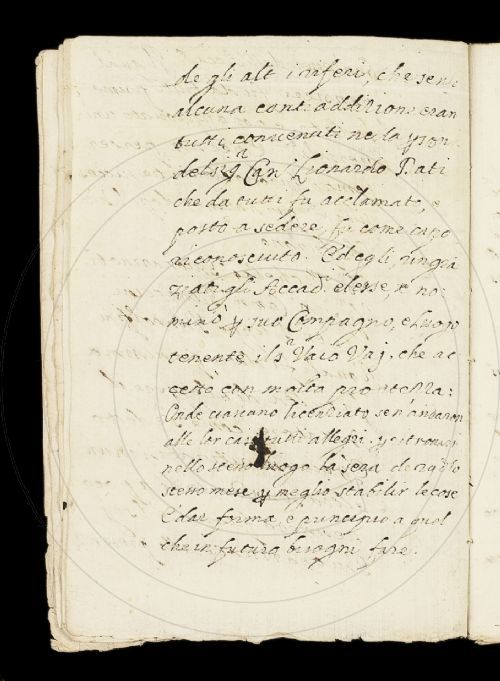 de gli alt. inferi, che senz
alcuna cont. addizione eran
tutti convenuti ne la
del Can. Lionardo Dati
che da tutti fu acclamat, e
posto a sedere, fu come capo
riconosciuto. Ed egli, ringra
ziati gli Accad. elesse, e no
minò suo Compagno, e Luogo
tenente il Vaio Vai. che ac
cettò con molta prontezza:
Onde ciascuno licenziato, se n'andaron
alle lor case tutti allegri. ritrovarsi
nello stesso luogo la sera de
stesso mese meglio stabilir le cose
E dar forma e principio a quel
che in futuro bisogni fare.